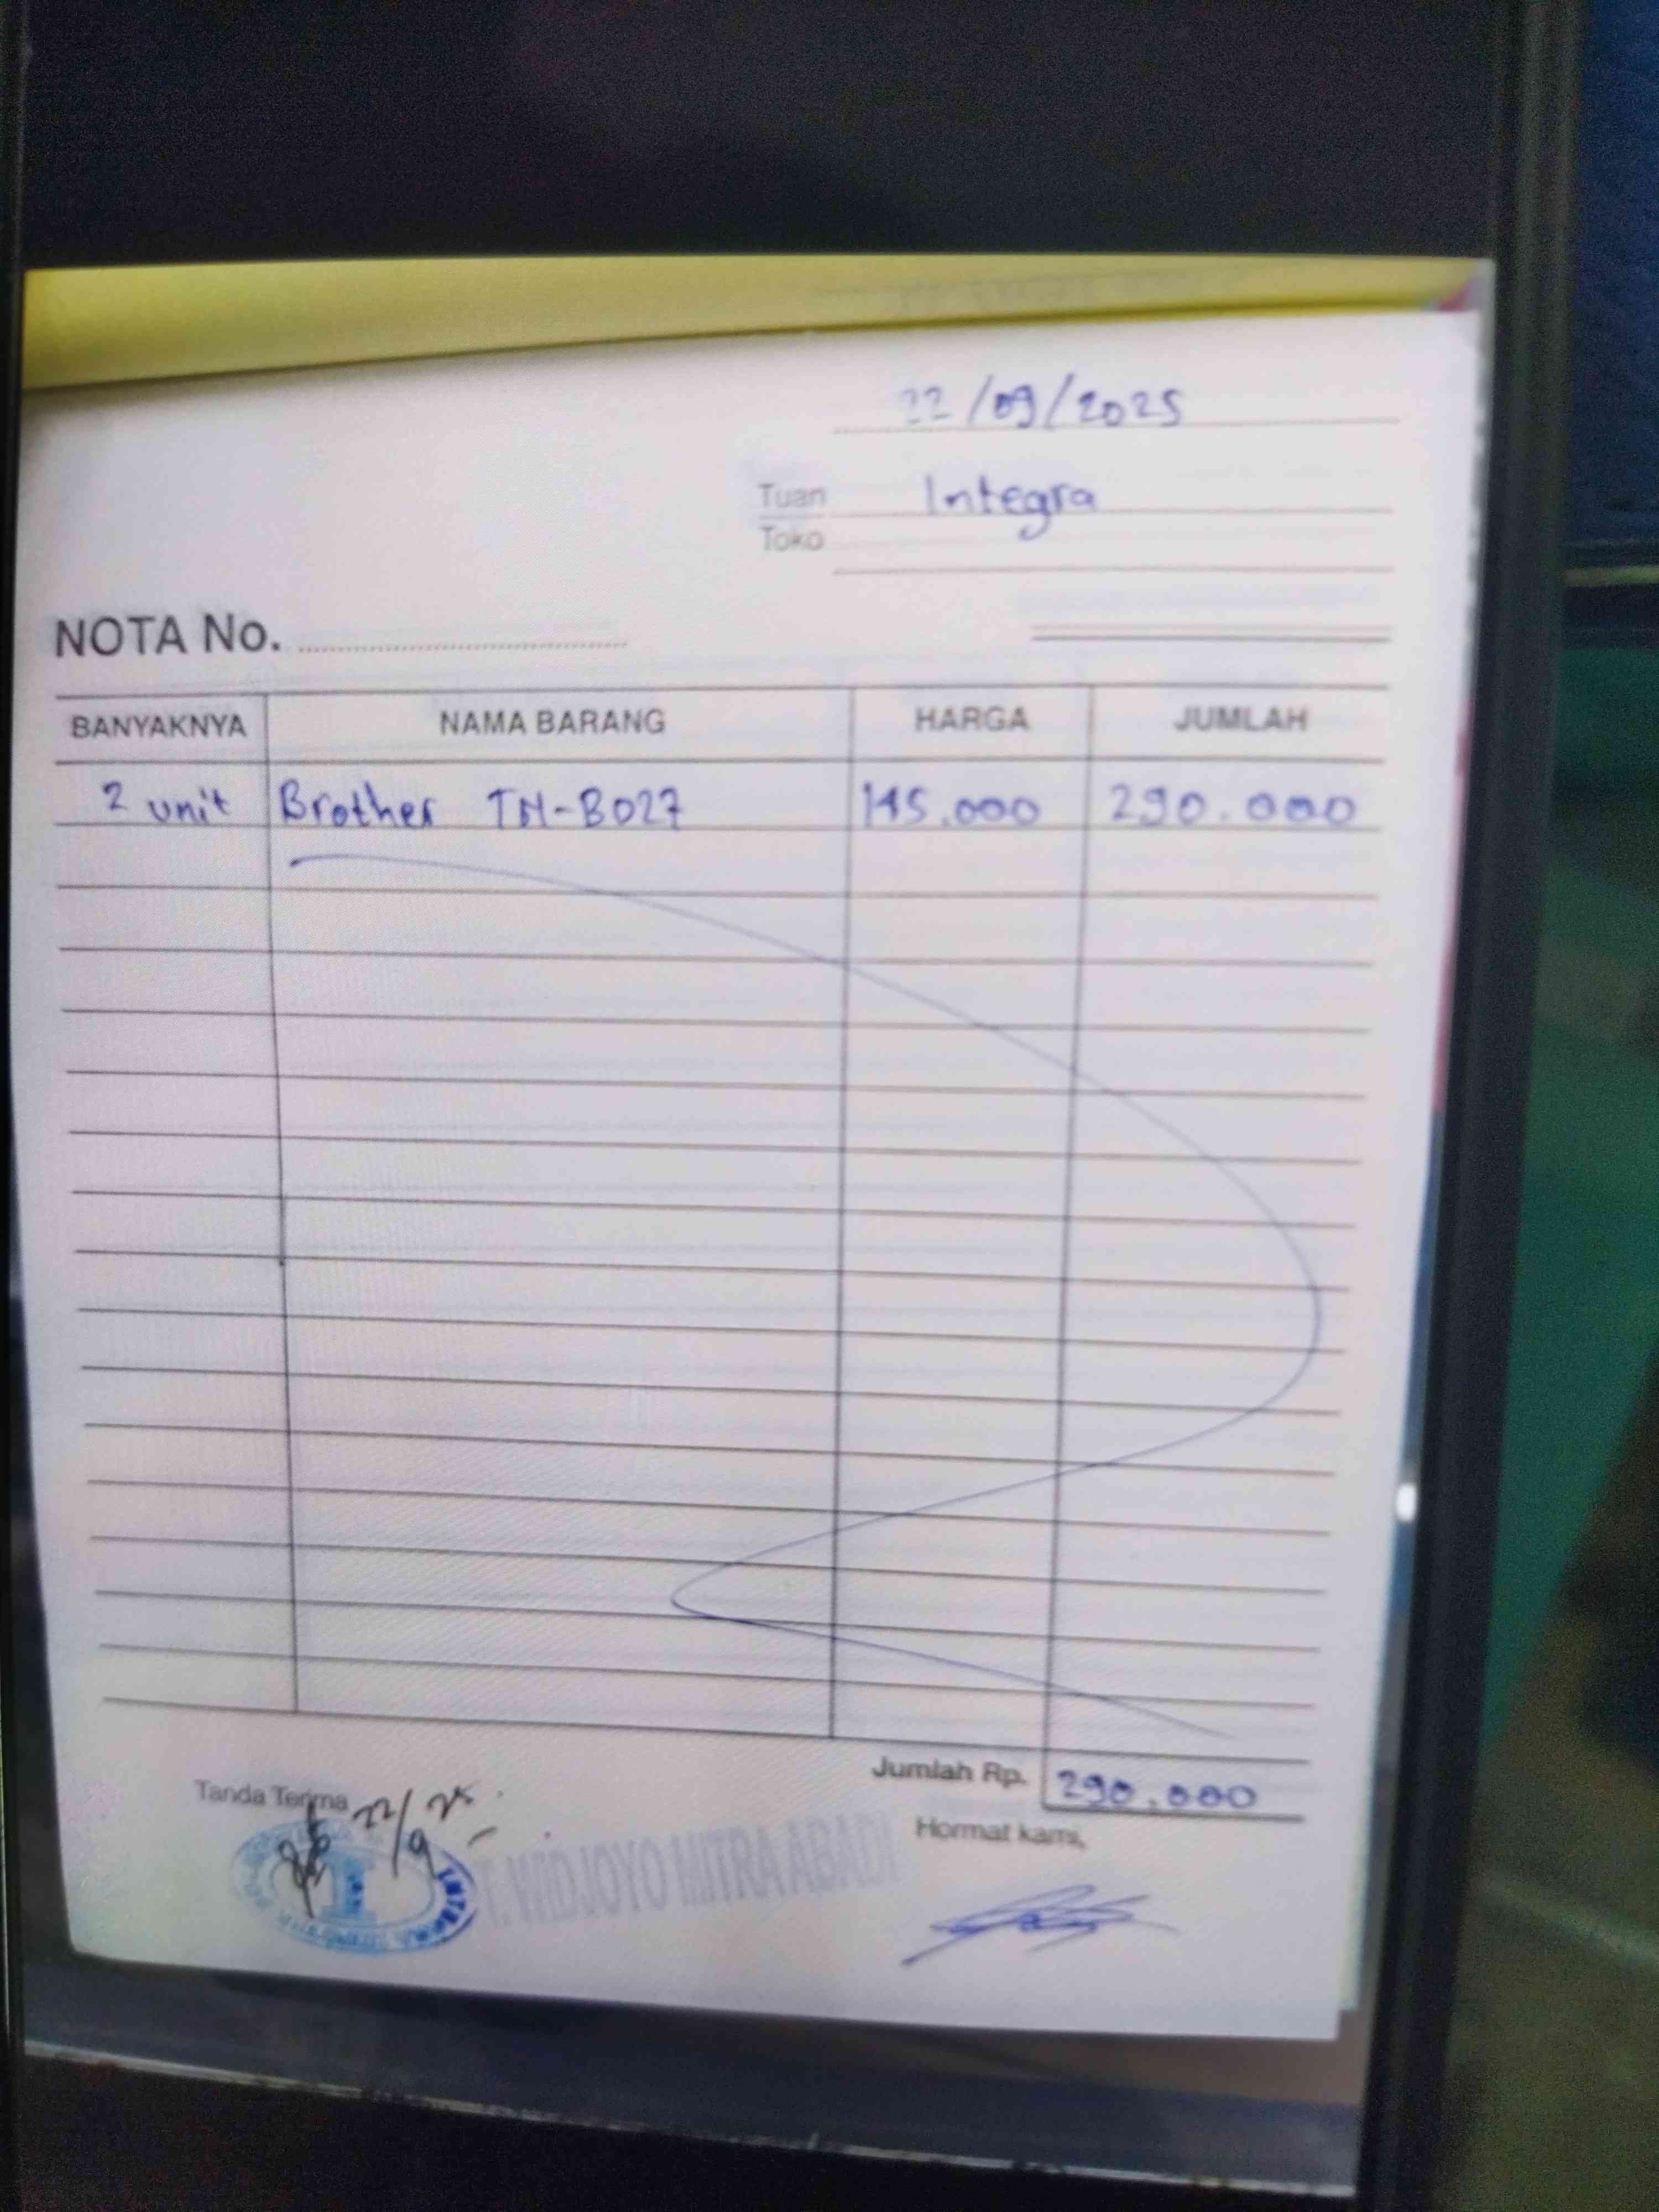 22/09/2025
Tuan Integra
Toko
NOTA No.
BANYAKNYA NAMA BARANG HARGA JUMLAH
2 unit Brother TN-B027 145.000 290.000
Jumlah Rp. 290.000
Tanda Terima
22/9 25
Hormat kami,
T. WIDJOYO MITRA ABADI